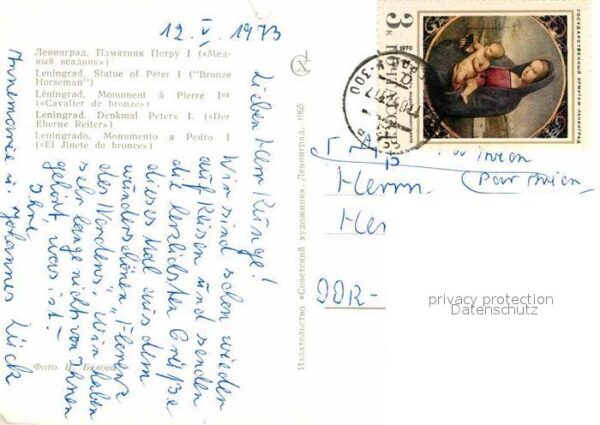 12. V. 1973
Ленинград. Памятник Петру I («Мед-
ный всадник»)
Leningrad, Statue of Peter I ("Bronze
Horseman")
Léningrad. Monument à Pierre Ier
(«Cavalier de bronze»)
Leningrad, Denkmal Peters I. («Der
Eherne Reiter»)
Leningrado, Monumento a Pedro I
(«El Jinete de bronce»)
Lieber Herr Runge!
Wir sind schon wieder
auf Reisen und senden
die herzlichsten Grüße
dieses Mal aus dem
wunderschönen "Florenz
des Nordens". Wir haben
sehr lange nicht von Ihnen
gehört, was ist?
Ihre
Annemarie u. Johannes Lück
Фото Н. Балова
Издательство «Советский художник», Ленинград, 1968
3 к
1970
ПОЧТА СССР
ГОСУДАРСТВЕННЫЙ ЭРМИТАЖ ЛЕНИНГРАД
Par avion
Herrn
DDR-
privacy protection
Datenschutz